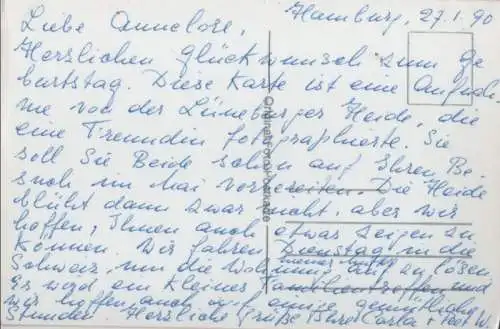 Hamburg, 27.1.90
Liebe Annelore,
Herzlichen Glückwunsch zum Ge
burtstag. Diese Karte ist eine Aufnah
me von der Lüneburger Heide, die
eine Freundin fotographierte. Sie
soll Sie Beide schon auf Ihren Be
such im Mai vorbereiten. Die Heide
blüht dann zwar nicht, aber wir
hoffen, Ihnen auch etwas zeigen zu
können. Wir fahren Dienstag in die
Schweiz, um die Wohnung meiner Mutter aufzulösen.
Es wird ein kleines Familientreffen und
wir hoffen auch auf einige gemütliche
Stunden. Herzliche Grüße Ihre Carla +